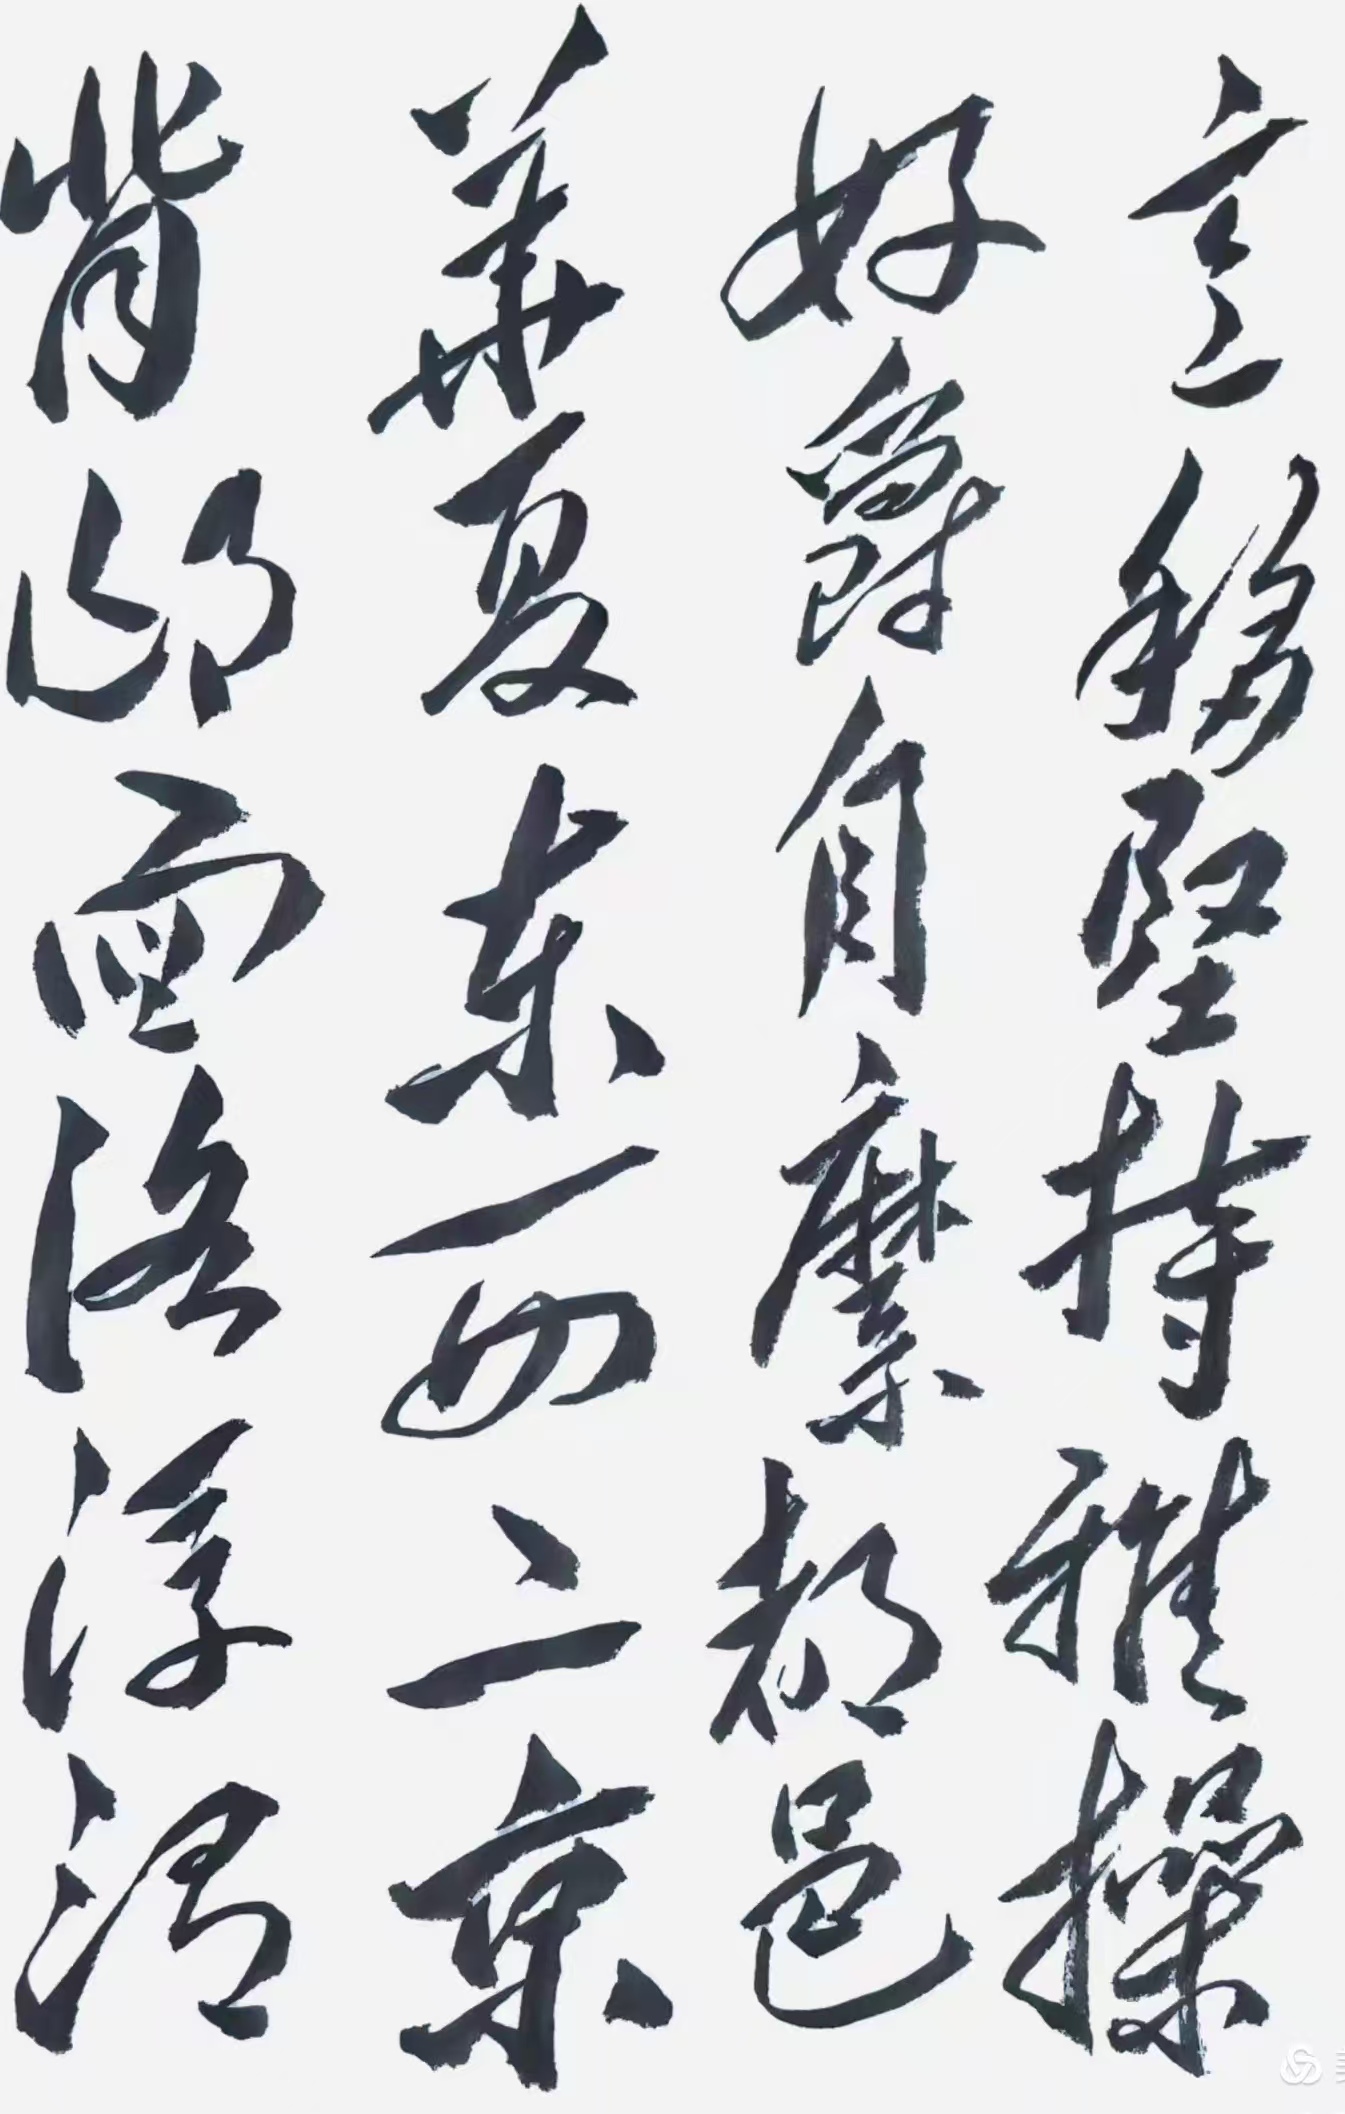 意移堅持雅操
好爵自縻都邑
華夏東西二京
背邙面洛浮渭